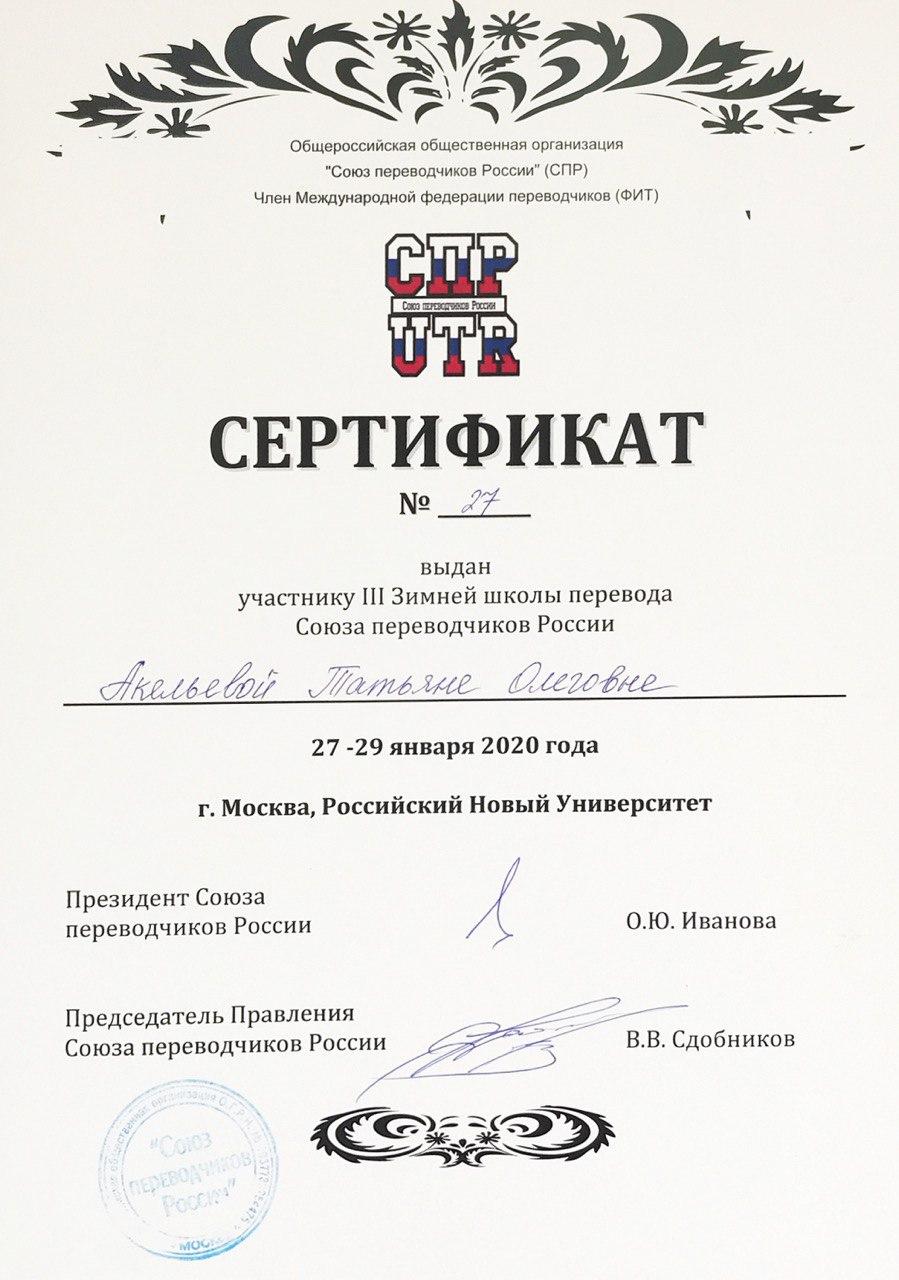 Общероссийская общественная организация
"Союз переводчиков России" (СПР)
Член Международной федерации переводчиков (ФИТ)
СПР
Союз переводчиков России
UTR
СЕРТИФИКАТ
№ 27
выдан
участнику III Зимней школы перевода
Союза переводчиков России
Акельевой Татьяне Олеговне
27 -29 января 2020 года
г. Москва, Российский Новый Университет
Президент Союза
переводчиков России
О.Ю. Иванова
Председатель Правления
Союза переводчиков России
В.В. Сдобников
общественная организация О.Г.Р.Н.
"Союз
переводчиков
России"